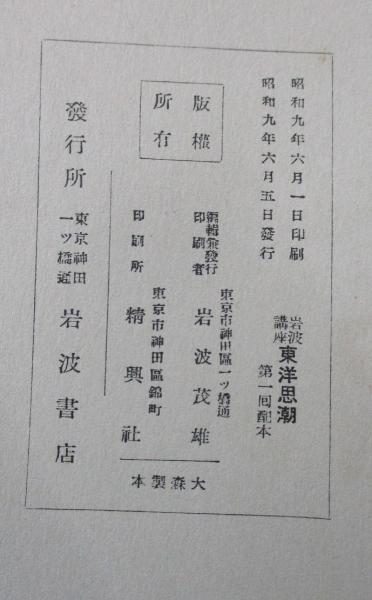 昭和九年六月一日印刷
昭和九年六月五日發行
岩波
講座
東洋思潮
第一囘配本
版權
所有
編輯兼發行
印刷者
東京市神田區一ッ橋通
岩波茂雄
印刷所
東京市神田區錦町
精興社
大森製本
發行所
東京神田
一ッ橋通
岩波書店